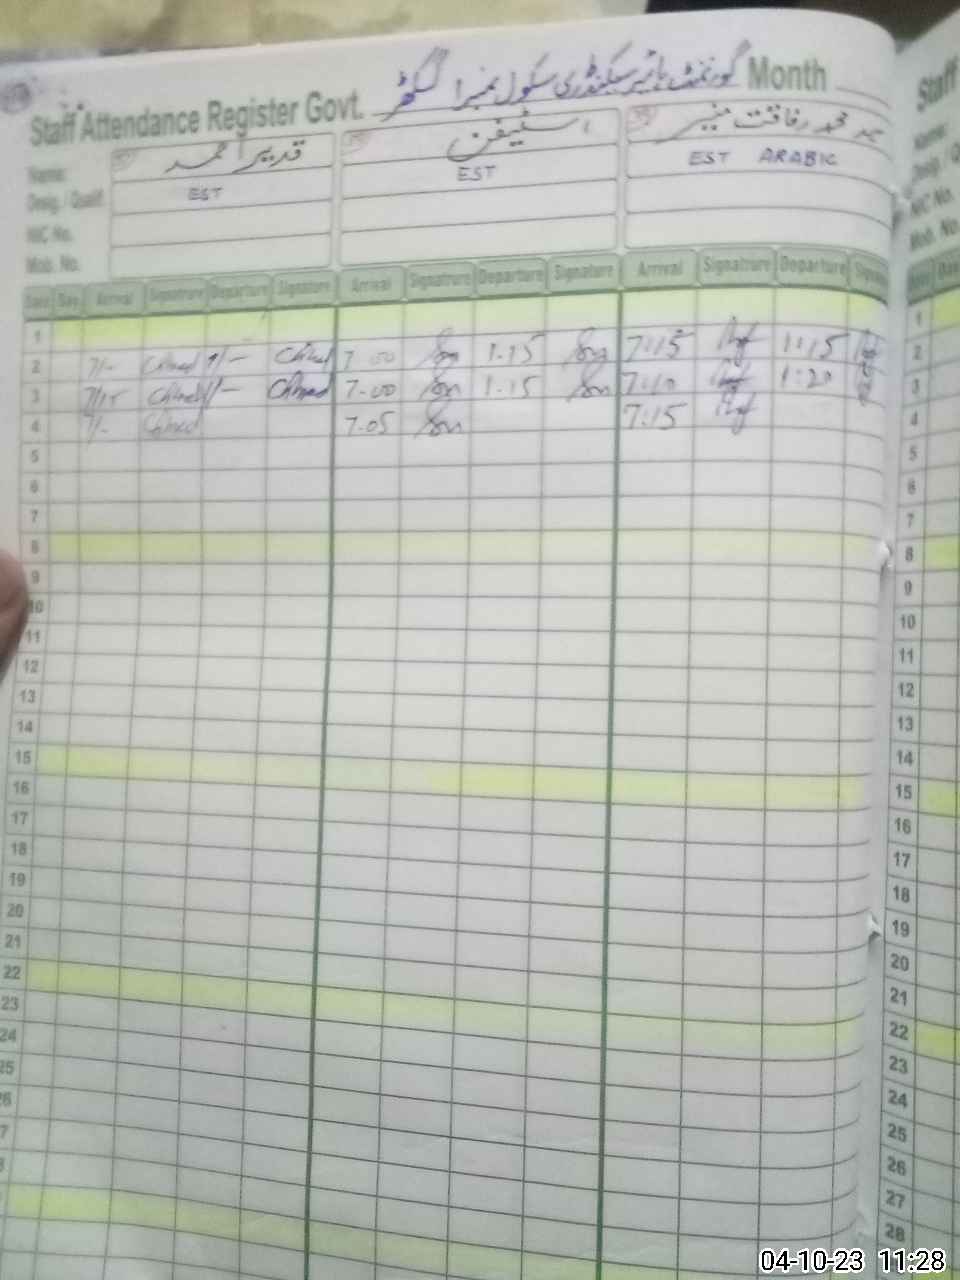 Staff Attendance Register Govt. گورنمنٹ ہائیر سیکنڈری سکول نمبر 1 گکھڑ Month
Name: قدیر احمد اسٹیفن محمد رفاقت منیر
Desig. / Qualif. EST EST EST ARABIC
NIC No.
Mob. No.
Date Day Arrival Signatrure Departure Signature Arrival Signatrure Departure Signature Arrival Signatrure Departure
1
2 7/- 7.00 1.15 7:15 1:15
3 7/15 7.00 1.15 7:10 1:20
4 7/- 7.05 7:15
5
6
7
8
9
10
11
12
13
14
15
16
17
18
19
20
21
22
23
24
25
Staff
NIC No.
Mob. No.
1
2
3
4
5
6
7
8
9
10
11
12
13
14
15
16
17
18
19
20
21
22
23
24
25
26
27
28
04-10-23 11:28